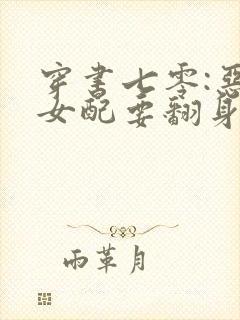 穿书七零:恶
女配要翻身
雨革月